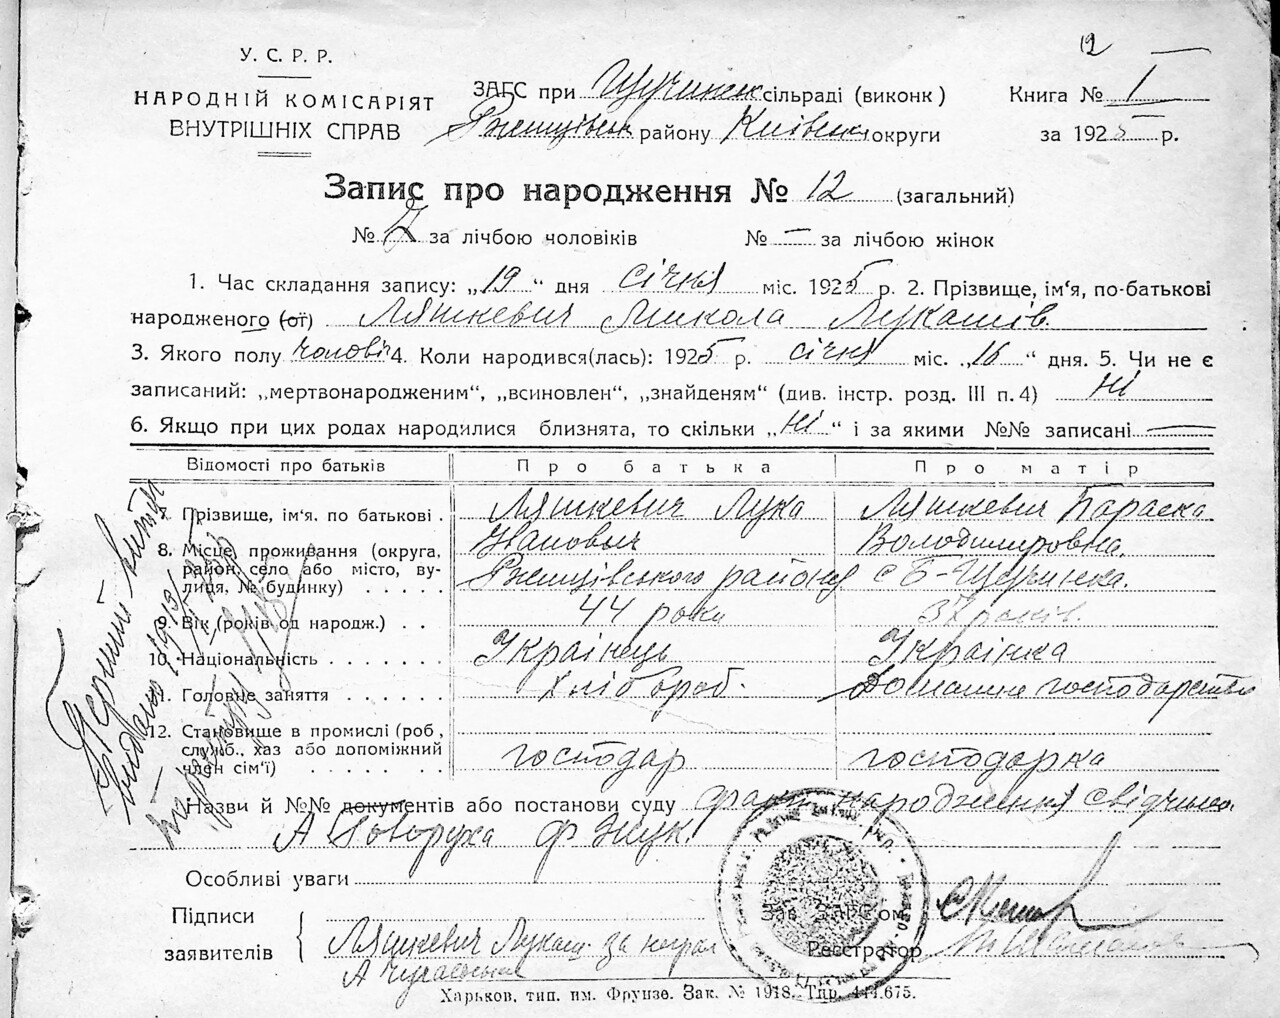 12
У. С. Р. Р.
НАРОДНІЙ КОМІСАРІЯТ
ВНУТРІШНІХ СПРАВ
ЗАГС при Щучинськ сільраді (виконк)
Ржищівськ району Київськ округи
Книга № I
за 1925 р.
Запис про народження № 12 (загальний)
№ 7 за лічбою чоловіків № — за лічбою жінок
1. Час складання запису: „19“ дня січня міс. 1925 р. 2. Прізвище, ім'я, по-батькові
народженого (от) Ляшкевич Микола Лукашів.
3. Якого полу чолові 4. Коли народився(лась): 1925 р. січня міс. „16“ дня. 5. Чи не є
записаний: „мертвонародженим“, „всиновлен“, „знайденям“ (див. інстр. розд. III п. 4) Ні
6. Якщо при цих родах народилися близнята, то скільки „Ні“ і за якими №№ записані —
Відомості про батьків Про батька Про матір
7. Прізвище, ім'я. по батькові . Ляшкевич Лука Ляшкевич Параска
Володимировна.
8. Місце проживання (округа,
район, село або місто, вулиця, № будинку) . . . . . Ржищівського району с Б-Щучинка.
9. Вік (років од народж.) . . 44 роки 37 років.
10. Національність . . . . . . . Українець Українка
11. Головне заняття . . . . . . . Хлібороб. Домашне господарство
12. Становище в промислі (роб,
служб., хаз або допоміжний
член сім'ї) . . . . . . . господар господарка
Назви й №№ документів або постанови суду факт народження свідчили
А Говоруха Ф Жук
Особливі уваги
Підписи
заявителів
Ляшкевич Лукаш за неграм
А
Зав. ЗАГС'ом
Реєстратор
Харьков, тип. им. Фрунзе. Зак. № 1918. Тир. 444.675.